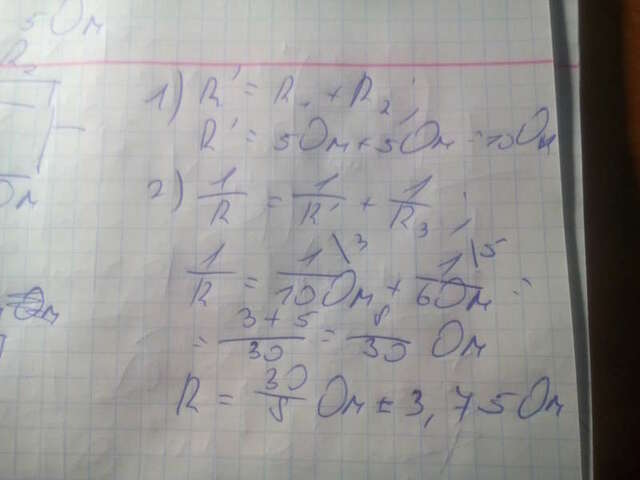 5Ом
R₂
Ом
Ом
1) R' = R₁ + R₂;
R' = 5Ом + 5Ом = 10Ом
2) 1/R = 1/R' + 1/R₃;
1/R = 1\3/10Ом + 1\5/6Ом =
= 3+5/30 = 8/30 Ом
R = 30/8 Ом = 3,75Ом